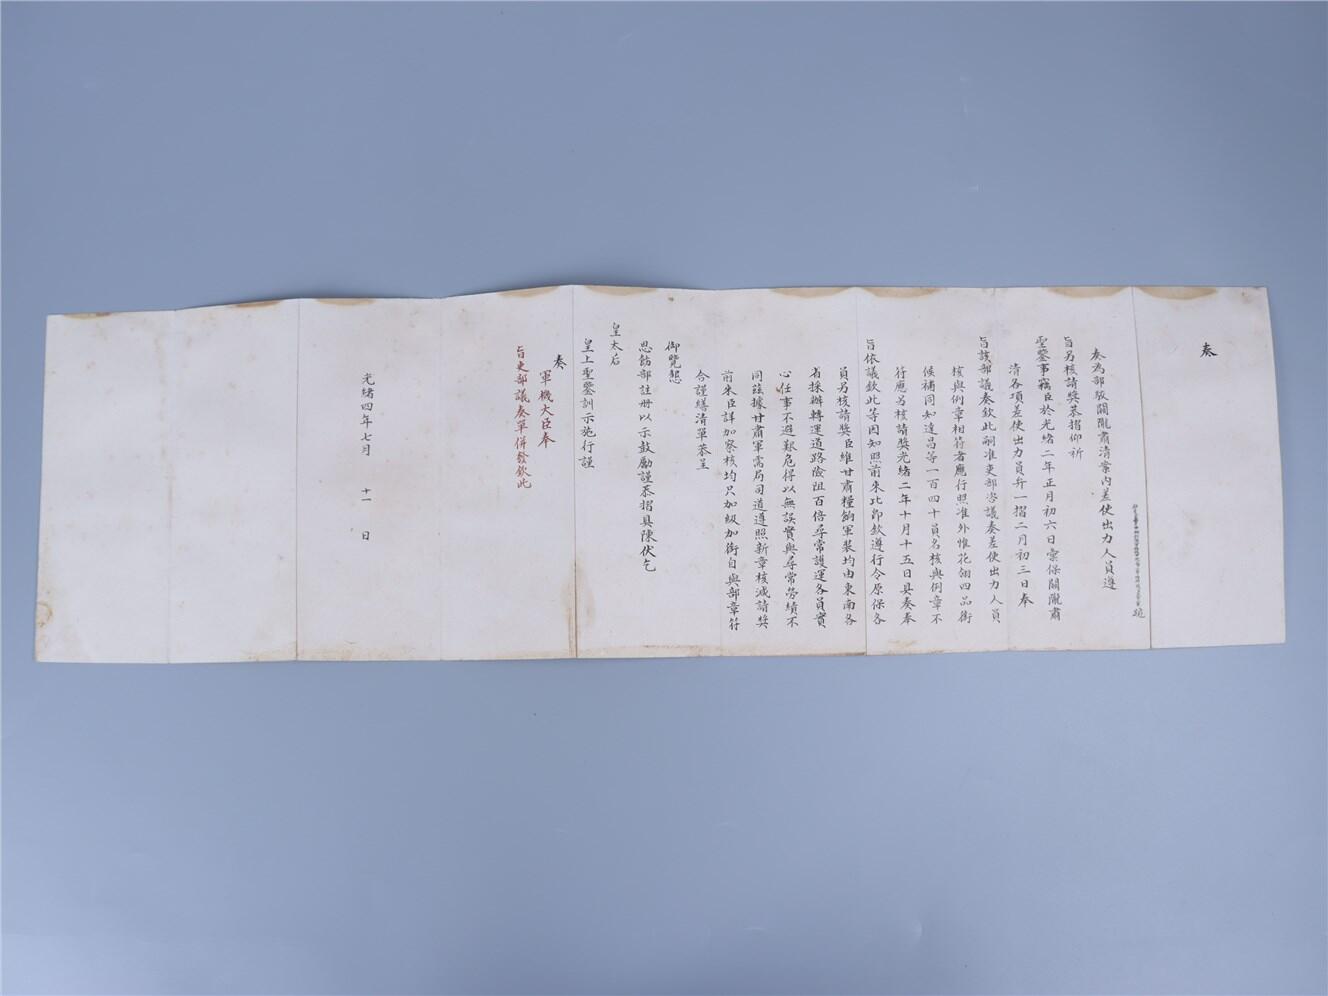 奏
奏為部駁關隴肅清案內差使出力人員遵
旨另核請獎恭摺仰祈
聖鑒事竊臣於光緒二年正月初六日彙保關隴肅
清各項差使出力員弁一摺二月初三日奉
旨該部議奏欽此嗣准吏部咨議奏差使出力人員
核與例章相符者應行照准外惟花翎四品銜
候補同知達昌等一百四十員名核與例章不
符應另核請獎光緒二年十月十五日具奏奉
旨依議欽此等因知照前來比即欽遵行令原保各
員另核請獎臣維甘肅糧餉軍裝均由東南各
省採辦轉運道路險阻百倍尋常護運各員實
心任事不避艱危得以無誤實與尋常勞績不
同茲據甘肅軍需局司道遵照新章核減請獎
前來臣詳加察核均只加級加銜自與部章符
合謹繕清單恭呈
御覽懇
恩飭部註冊以示鼓勵謹恭摺具陳伏乞
皇太后
皇上聖鑒訓示施行謹
奏
軍機大臣奉
旨吏部議奏單併發欽此
光緒四年七月 十一 日